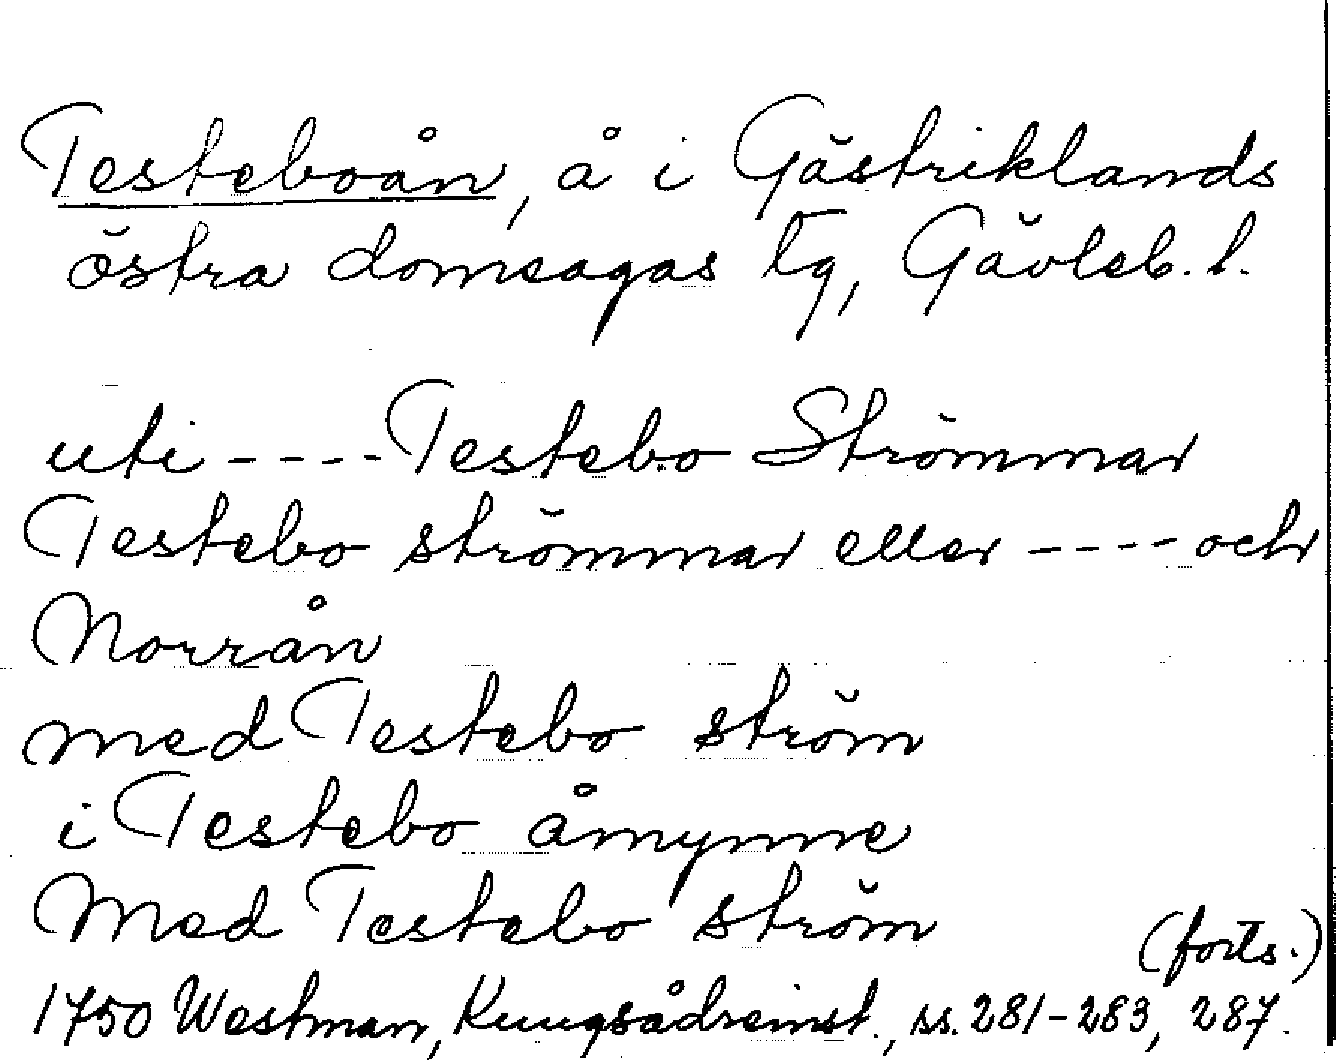 Testeboån, å i Gästriklands
östra domsagas tg, Gävleb. l.
uti ---- Testebo Strömmar
Testebo strömmar eller ---- och
Norrån
med Testebo ström
i Testebo åmynne
Med Testebo ström
(forts.)
1750 Westman, Kungsådreinst., ss. 281-283, 287.